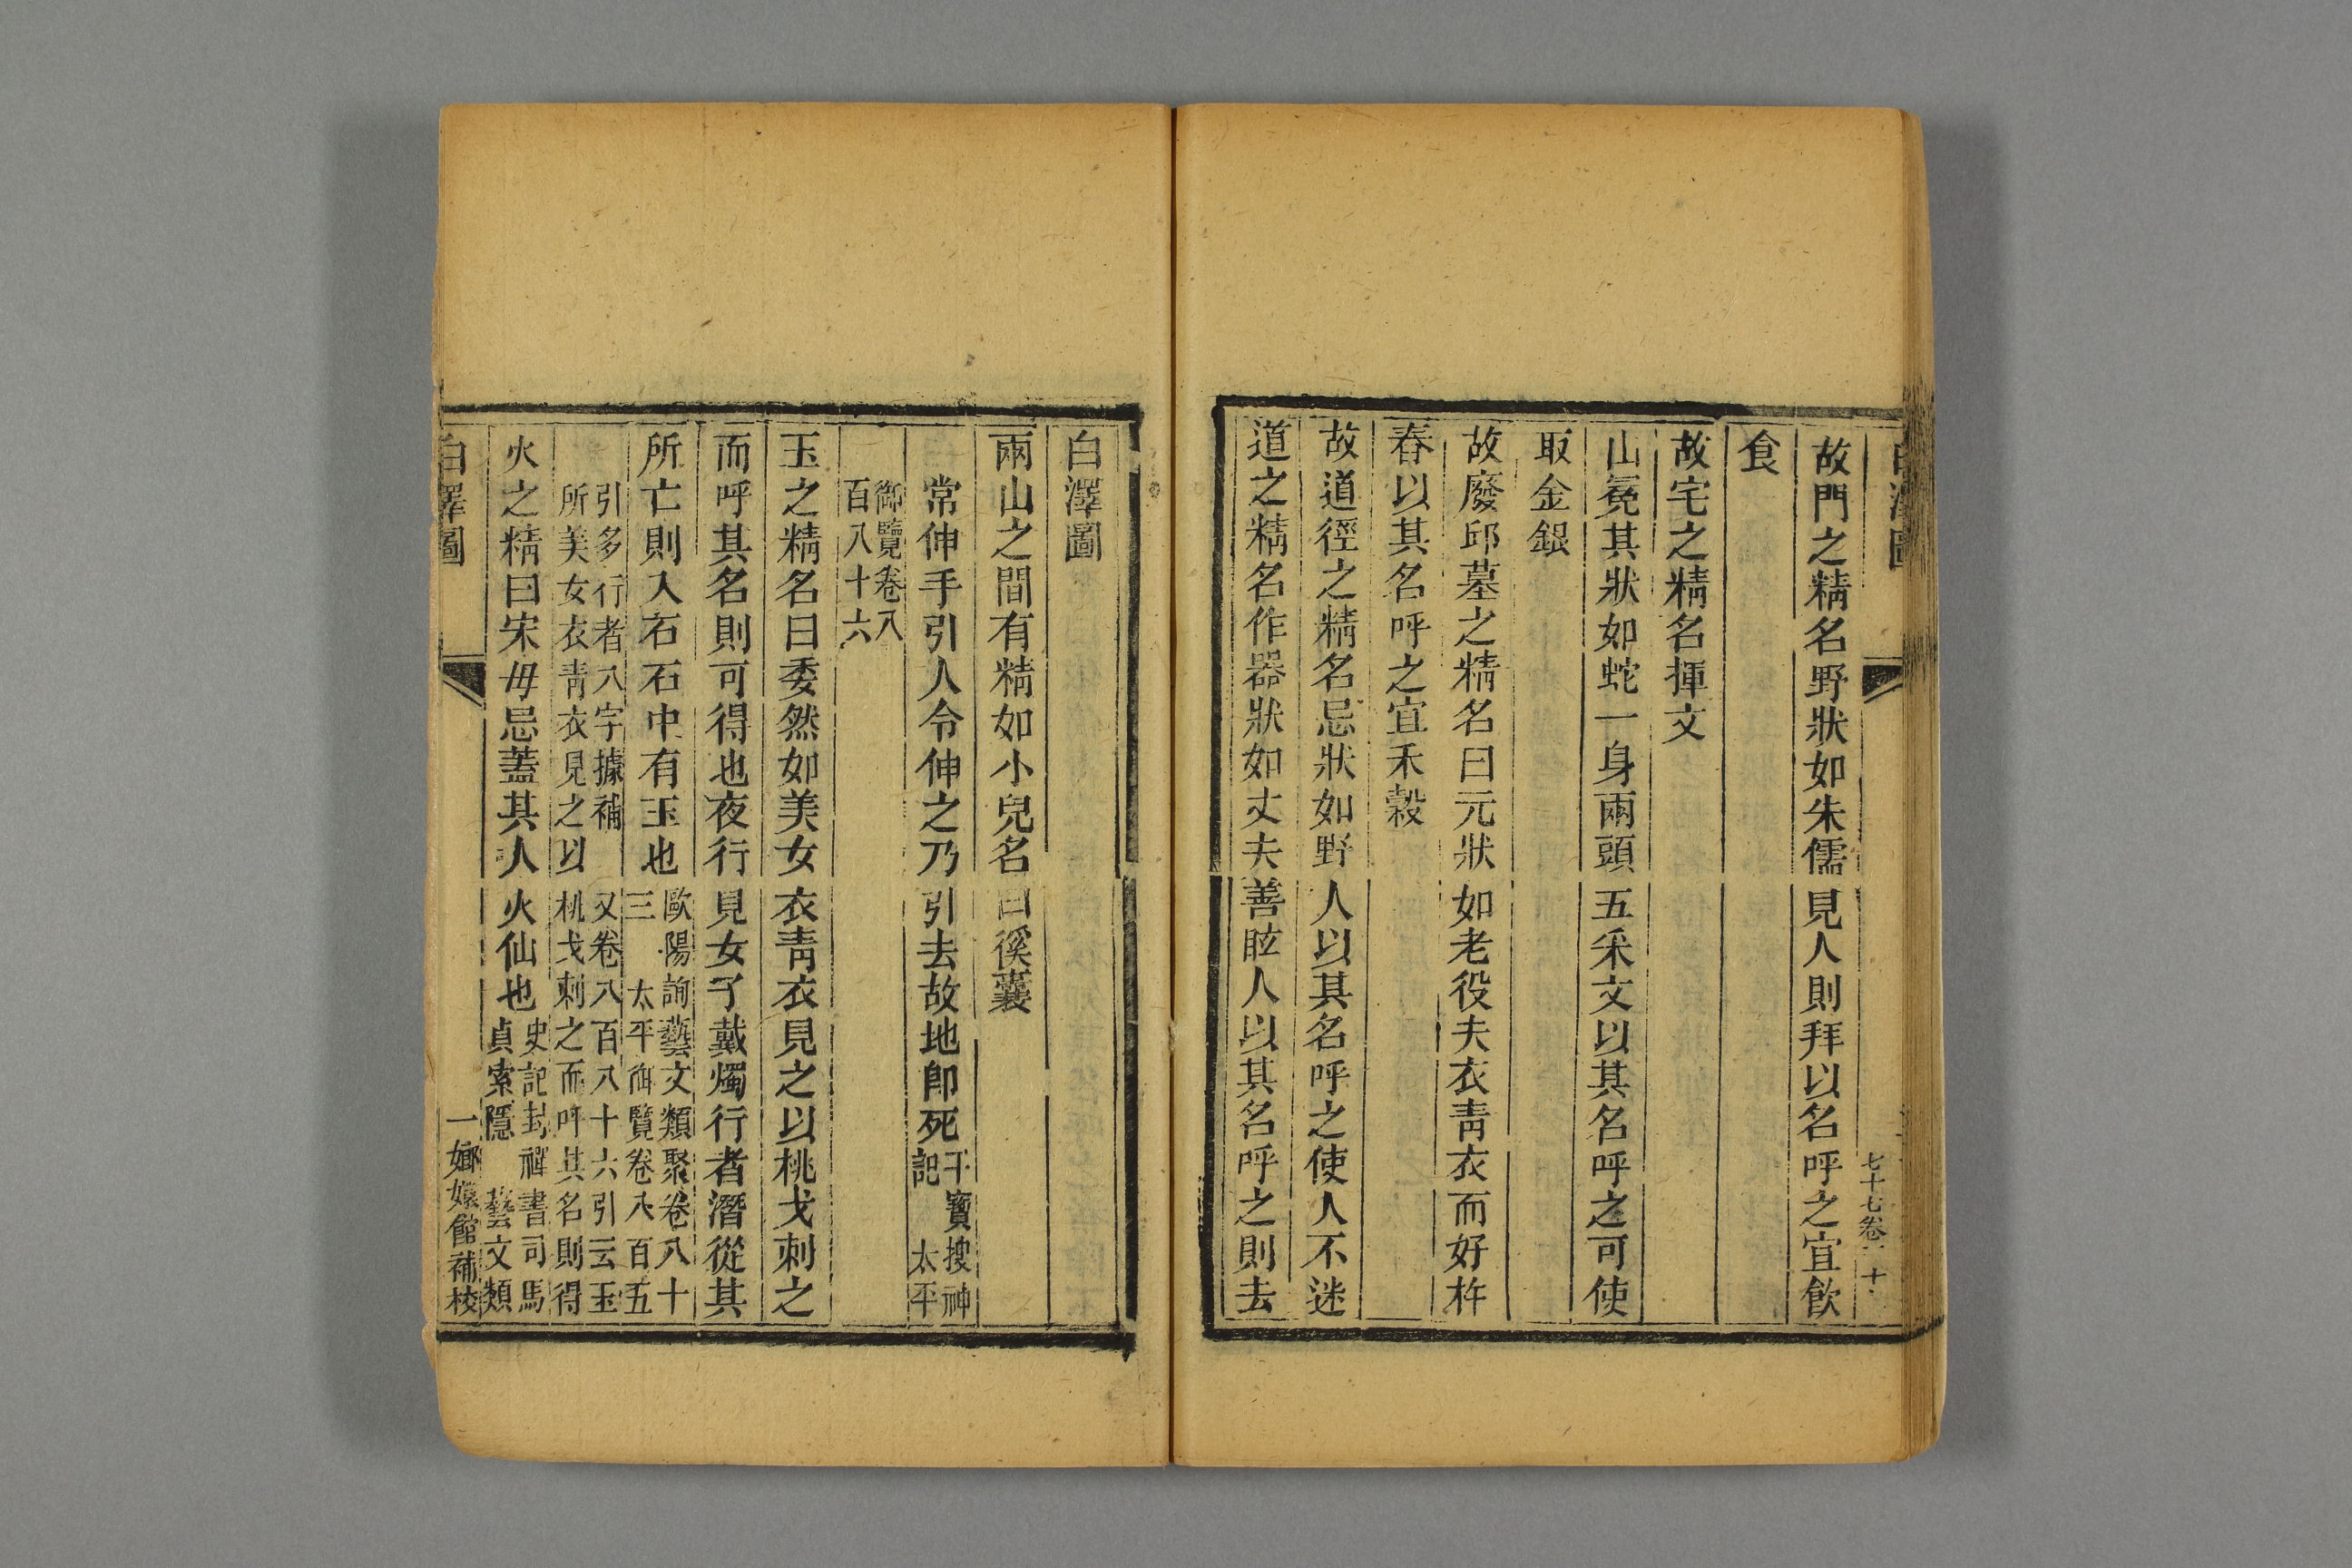 白澤圖
七十七卷 十
故門之精名野狀如朱儒見人則拜以名呼之宜飲
食
故宅之精名揮文
山冕其狀如蛇一身兩頭五采文以其名呼之可使
取金銀
故廢邱墓之精名曰元狀如老役夫衣靑衣而好杵
舂以其名呼之宜禾穀
故道徑之精名忌狀如野人以其名呼之使人不迷
道之精名作器狀如丈夫善眩人以其名呼之則去
白澤圖
兩山之間有精如小兒名曰傒囊
常伸手引人令伸之乃引去故地卽死干寶搜神
記 太平
御覽卷八
百八十六
玉之精名曰委然如美女衣靑衣見之以桃戈刺之
而呼其名則可得也夜行見女子戴燭行者潛從其
所亡則入石石中有玉也歐陽詢藝文類聚卷八十
三 太平御覽卷八百五
引多行者八字據補 又卷八百八十六引云玉
所美女衣靑衣見之以桃戈刺之而呼其名則得
火之精曰宋毋忌蓋其人火仙也史記封禪書司馬
貞索隱 藝文類
白澤圖
一 嫏嬛館補校